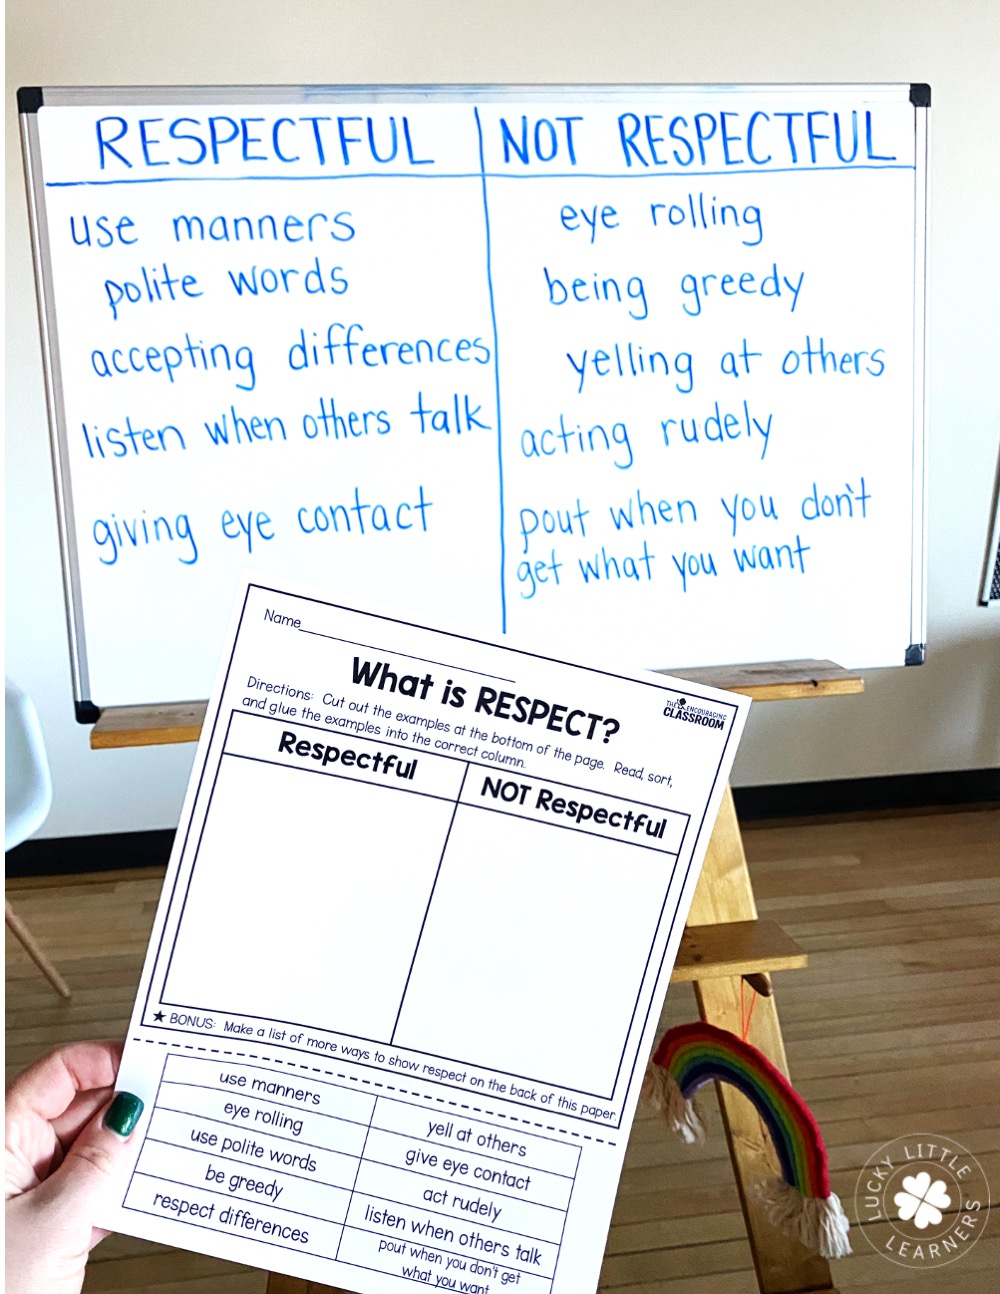 RESPECTFUL
use manners
polite words
accepting differences
listen when others talk
giving eye contact
NOT RESPECTFUL
eye rolling
being greedy
yelling at others
acting rudely
pout when you don't
get what you want
Name
What is RESPECT?
THE ENCOURAGING
CLASSROOM
Directions: Cut out the examples at the bottom of the page. Read, sort,
and glue the examples into the correct column.
Respectful
NOT Respectful
★ BONUS: Make a list of more ways to show respect on the back of this paper.
use manners
eye rolling
use polite words
be greedy
respect differences
yell at others
give eye contact
act rudely
listen when others talk
pout when you don't get
what you want
LUCKY LITTLE
LEARNERS